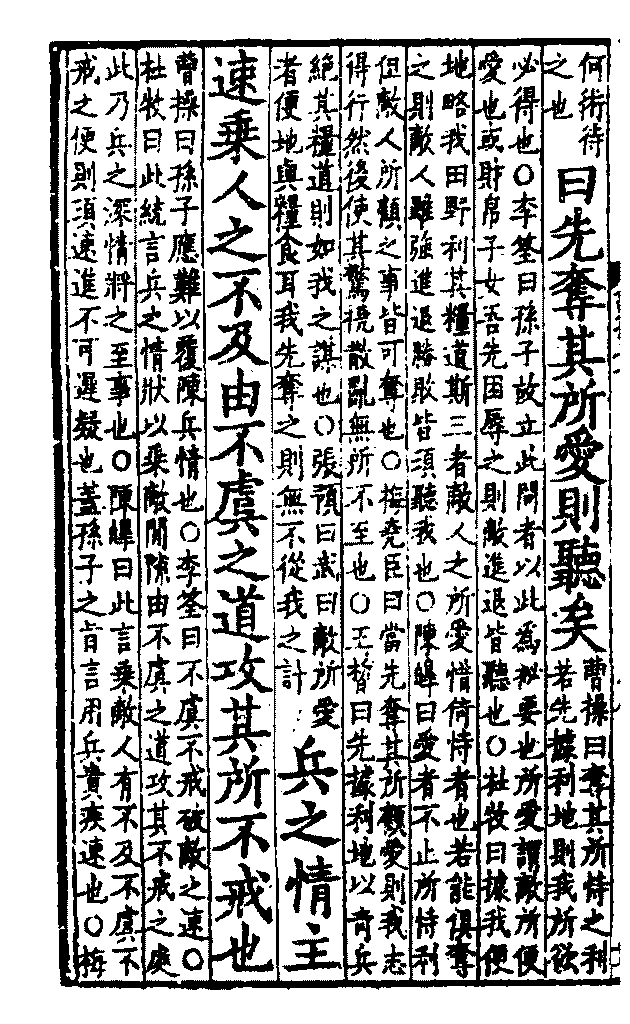 何術待
之也
曰先奪其所愛則聽矣
曹操曰奪其所恃之利
若先據利地則我所欲
必得也○李筌曰孫子故立此問者以此為祕要也所愛謂敵所便
愛也或財帛子女吾先困辱之則敵進退皆聽也○杜牧曰據我便
地略我田野利其糧道斯三者敵人之所愛惜倚恃者也若能俱奪
之則敵人雖強進退勝敗皆須聽我也○陳皥曰愛者不止所恃利
但敵人所顧之事皆可奪也○梅堯臣曰當先奪其所顧愛則我志
得行然後使其驚撓散亂無所不至也○王晳曰先據利地以奇兵
絕其糧道則如我之謀也○張預曰武曰敵所愛
者便地與糧食耳我先奪之則無不從我之計
兵之情主
速乘人之不及由不虞之道攻其所不戒也
曹操曰孫子應難以覆陳兵情也○李筌曰不虞不戒破敵之速○
杜牧曰此統言兵之情狀以乘敵間隙由不虞之道攻其不戒之處
此乃兵之深情將之至事也○陳皥曰此言乘敵人有不及不虞不
戒之便則須速進不可遲疑也蓋孫子之旨言用兵貴疾速也○梅